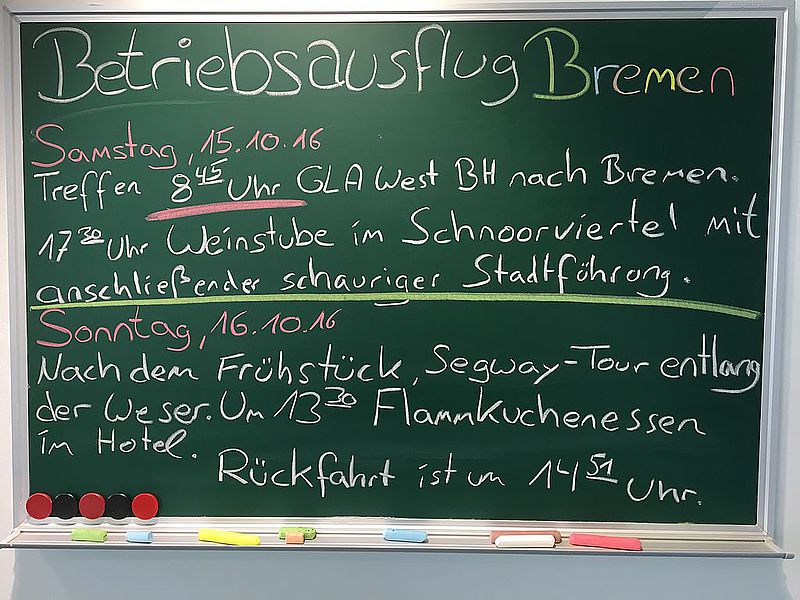 Betriebsausflug Bremen
Samstag, 15.10.16
Treffen 8 45 Uhr GLA West BH nach Bremen.
17 30 Uhr Weinstube im Schnoorviertel mit
anschließender schauriger Stadtführung.
Sonntag, 16.10.16
Nach dem Frühstück, Segway-Tour entlang
der Weser. Um 13 30 Flammkuchenessen
im Hotel.
Rückfahrt ist um 14 51 Uhr.